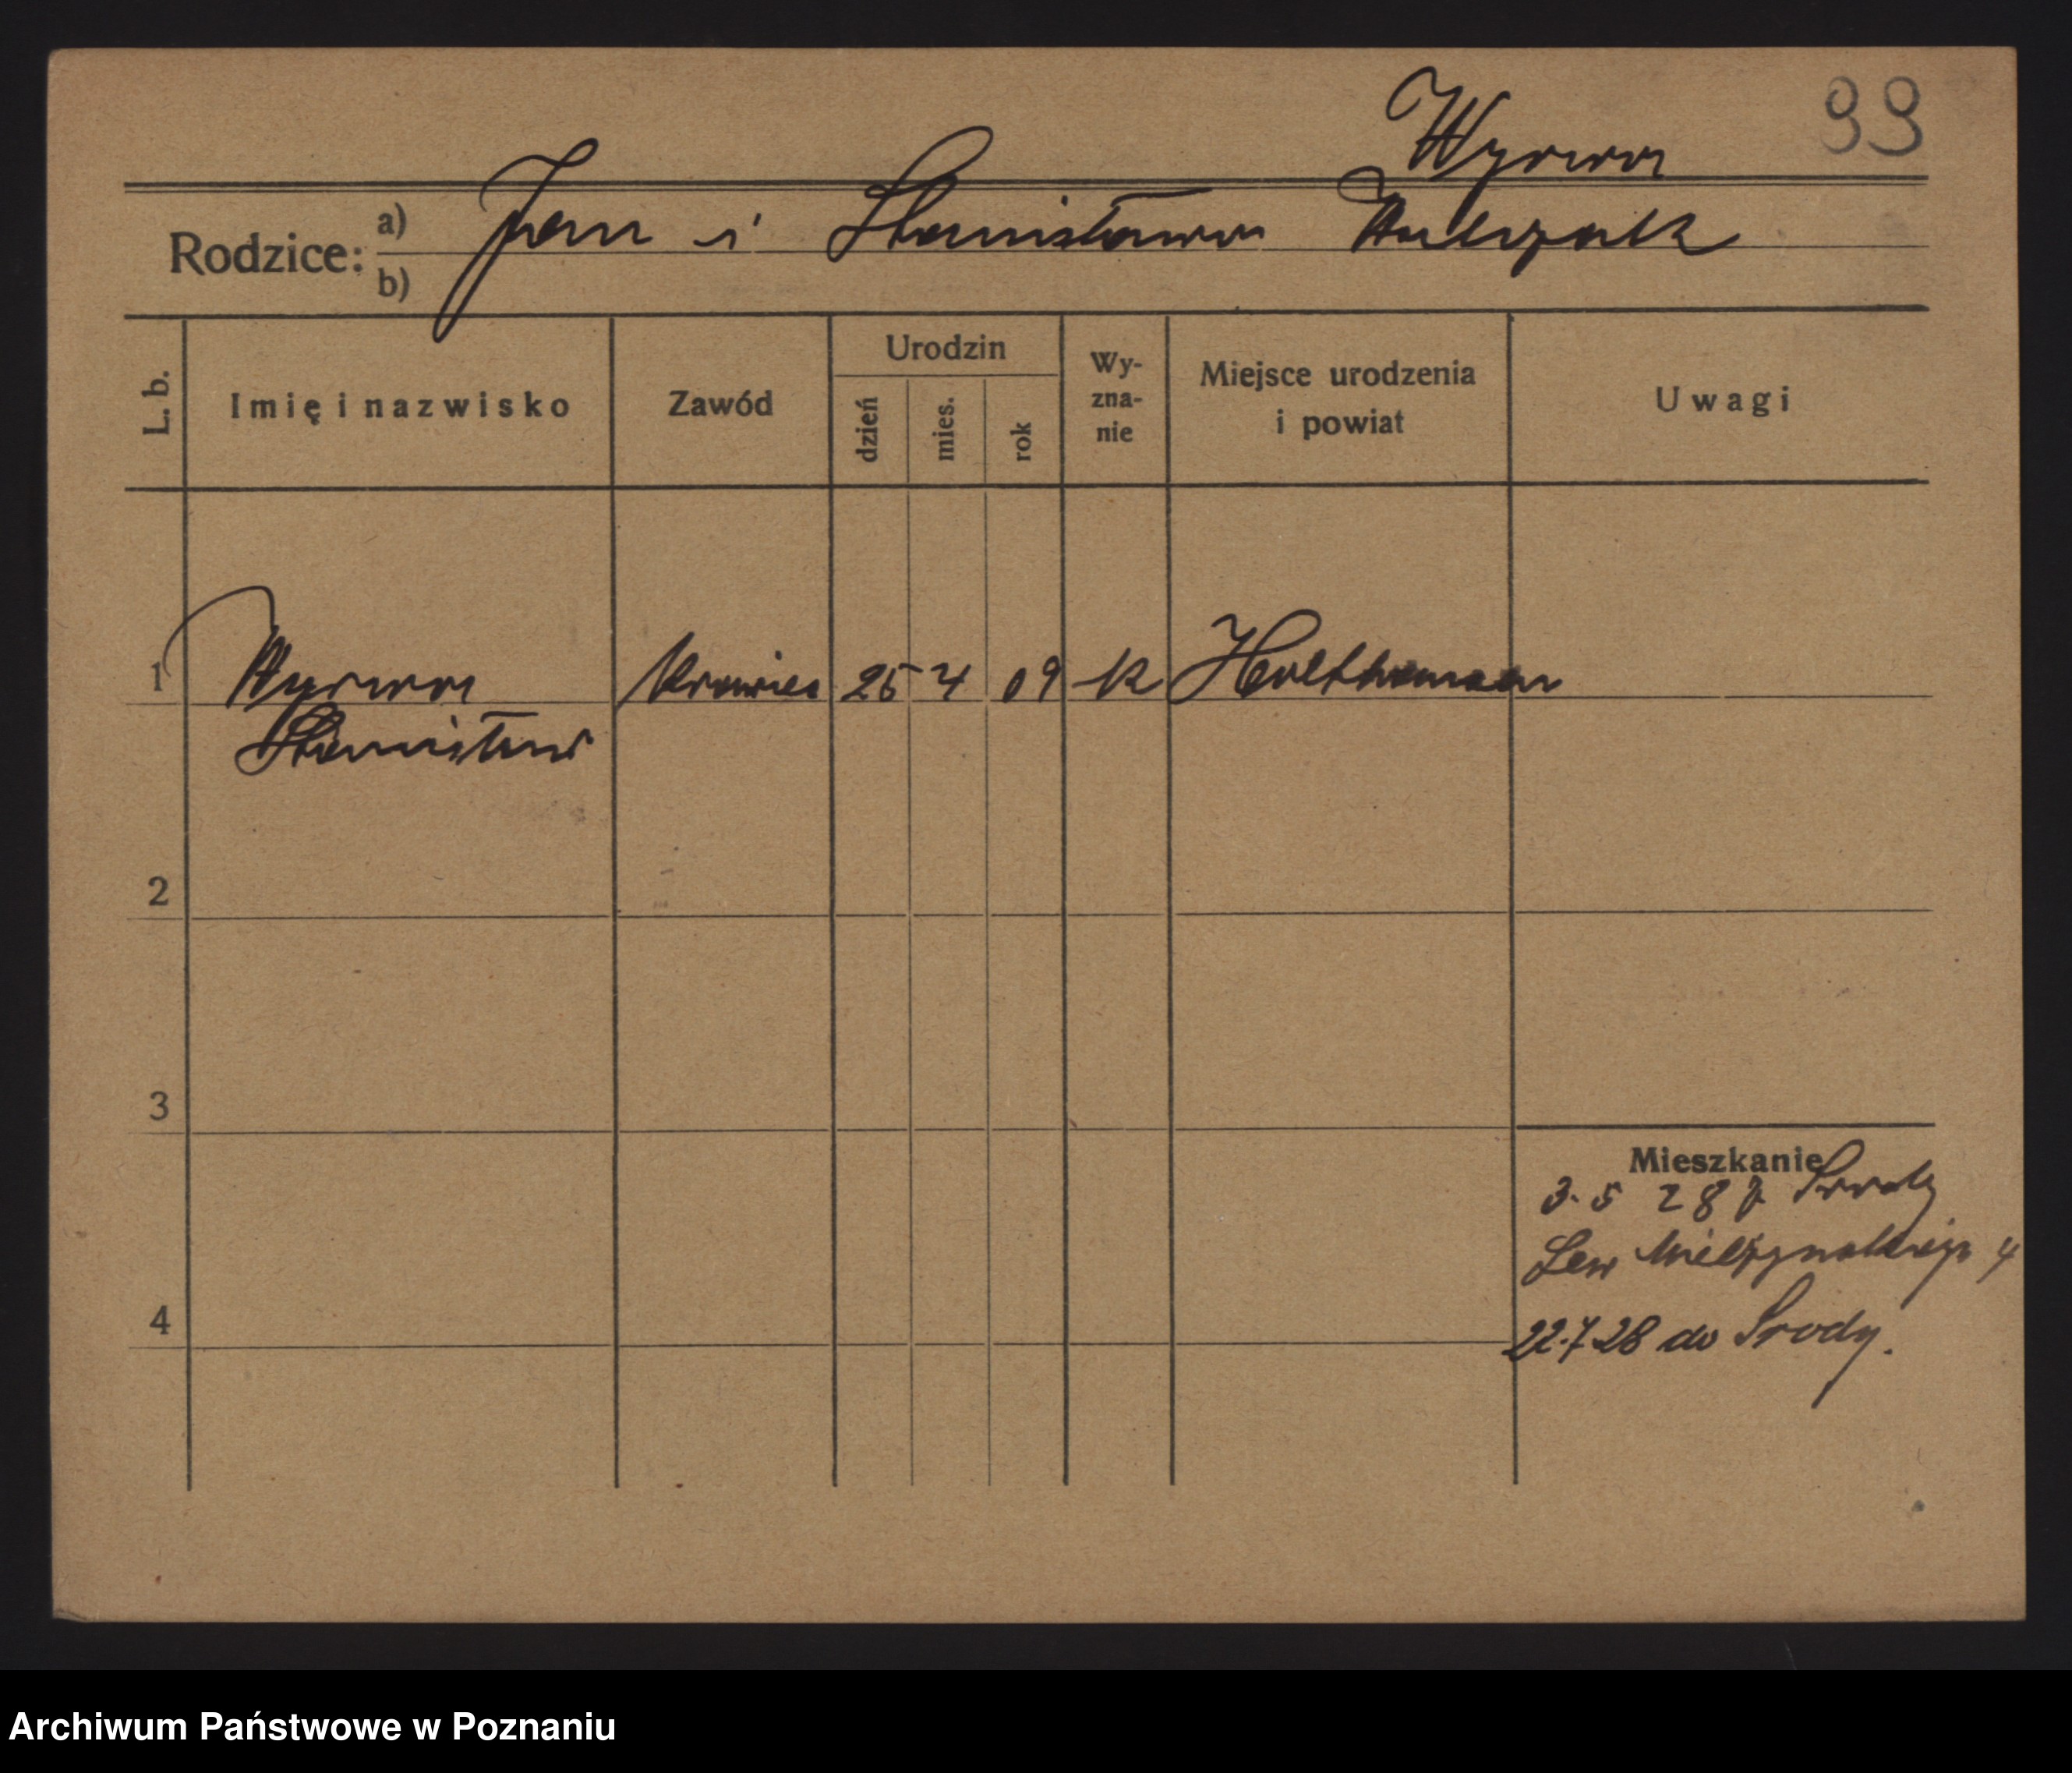 99
Wyrwa
Rodzice: a) Jan i Stanisława Walczak
b)
L. b. Imię i nazwisko Zawód Urodzin dzień mies. rok Wy-zna-nie Miejsce urodzenia i powiat Uwagi
1 Wyrwa Krawiec 25 4 09 K Holthausen
Stanisław
2
3
Mieszkanie
3. 5 28 z Środy
Sew Mielżyńskiego 4
4
22.7 28 do Środy.
Archiwum Państwowe w Poznaniu